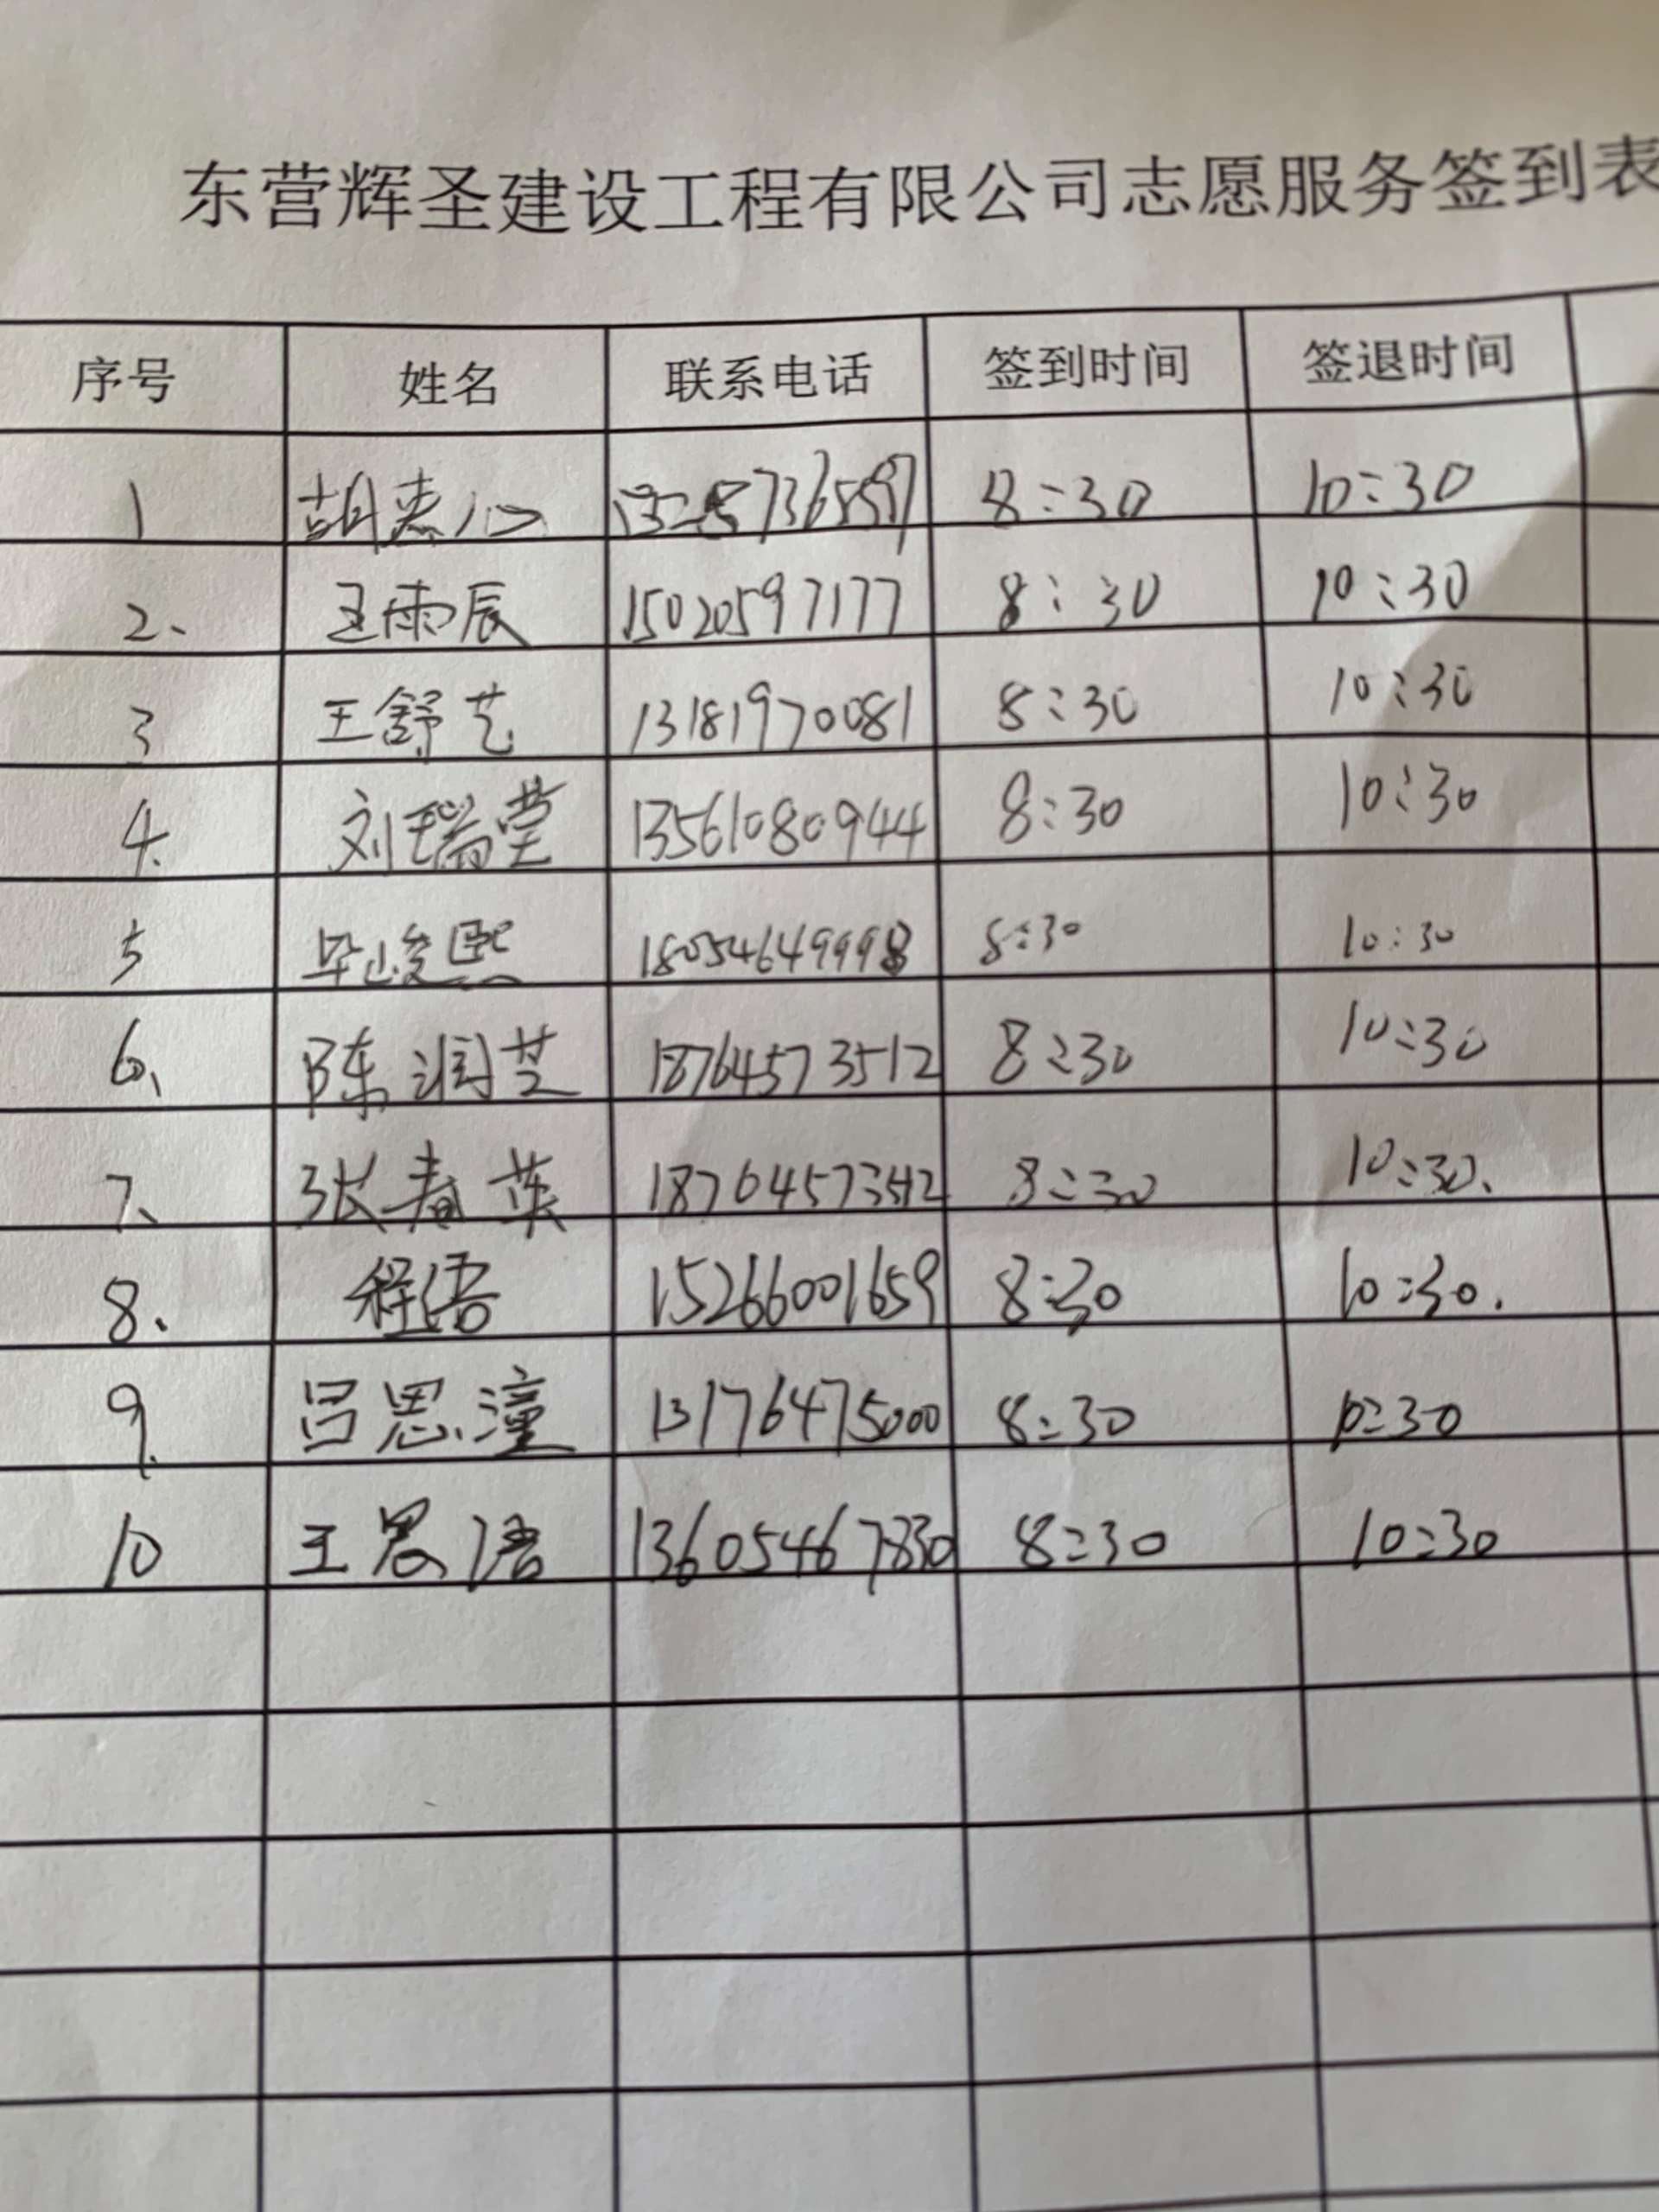 东营辉圣建设工程有限公司志愿服务签到表
序号 姓名 联系电话 签到时间 签退时间
1 胡惠 8:30 10:30
2、 王雨辰 15020597177 8:30 10:30
3 王舒艺 13181970081 8:30 10:30
4. 刘瑞莹 13561080944 8:30 10:30
5 毕峻熙 18054649998 8:30 10:30
6、 陈润芝 18764573512 8:30 10:30
7、 张春英 18764573512 8:30 10:30、
8、 程语 15266001659 8:30 10:30.
9. 吕思潼 13176475000 8:30 10:30
10 王思语 13605467830 8:30 10:30